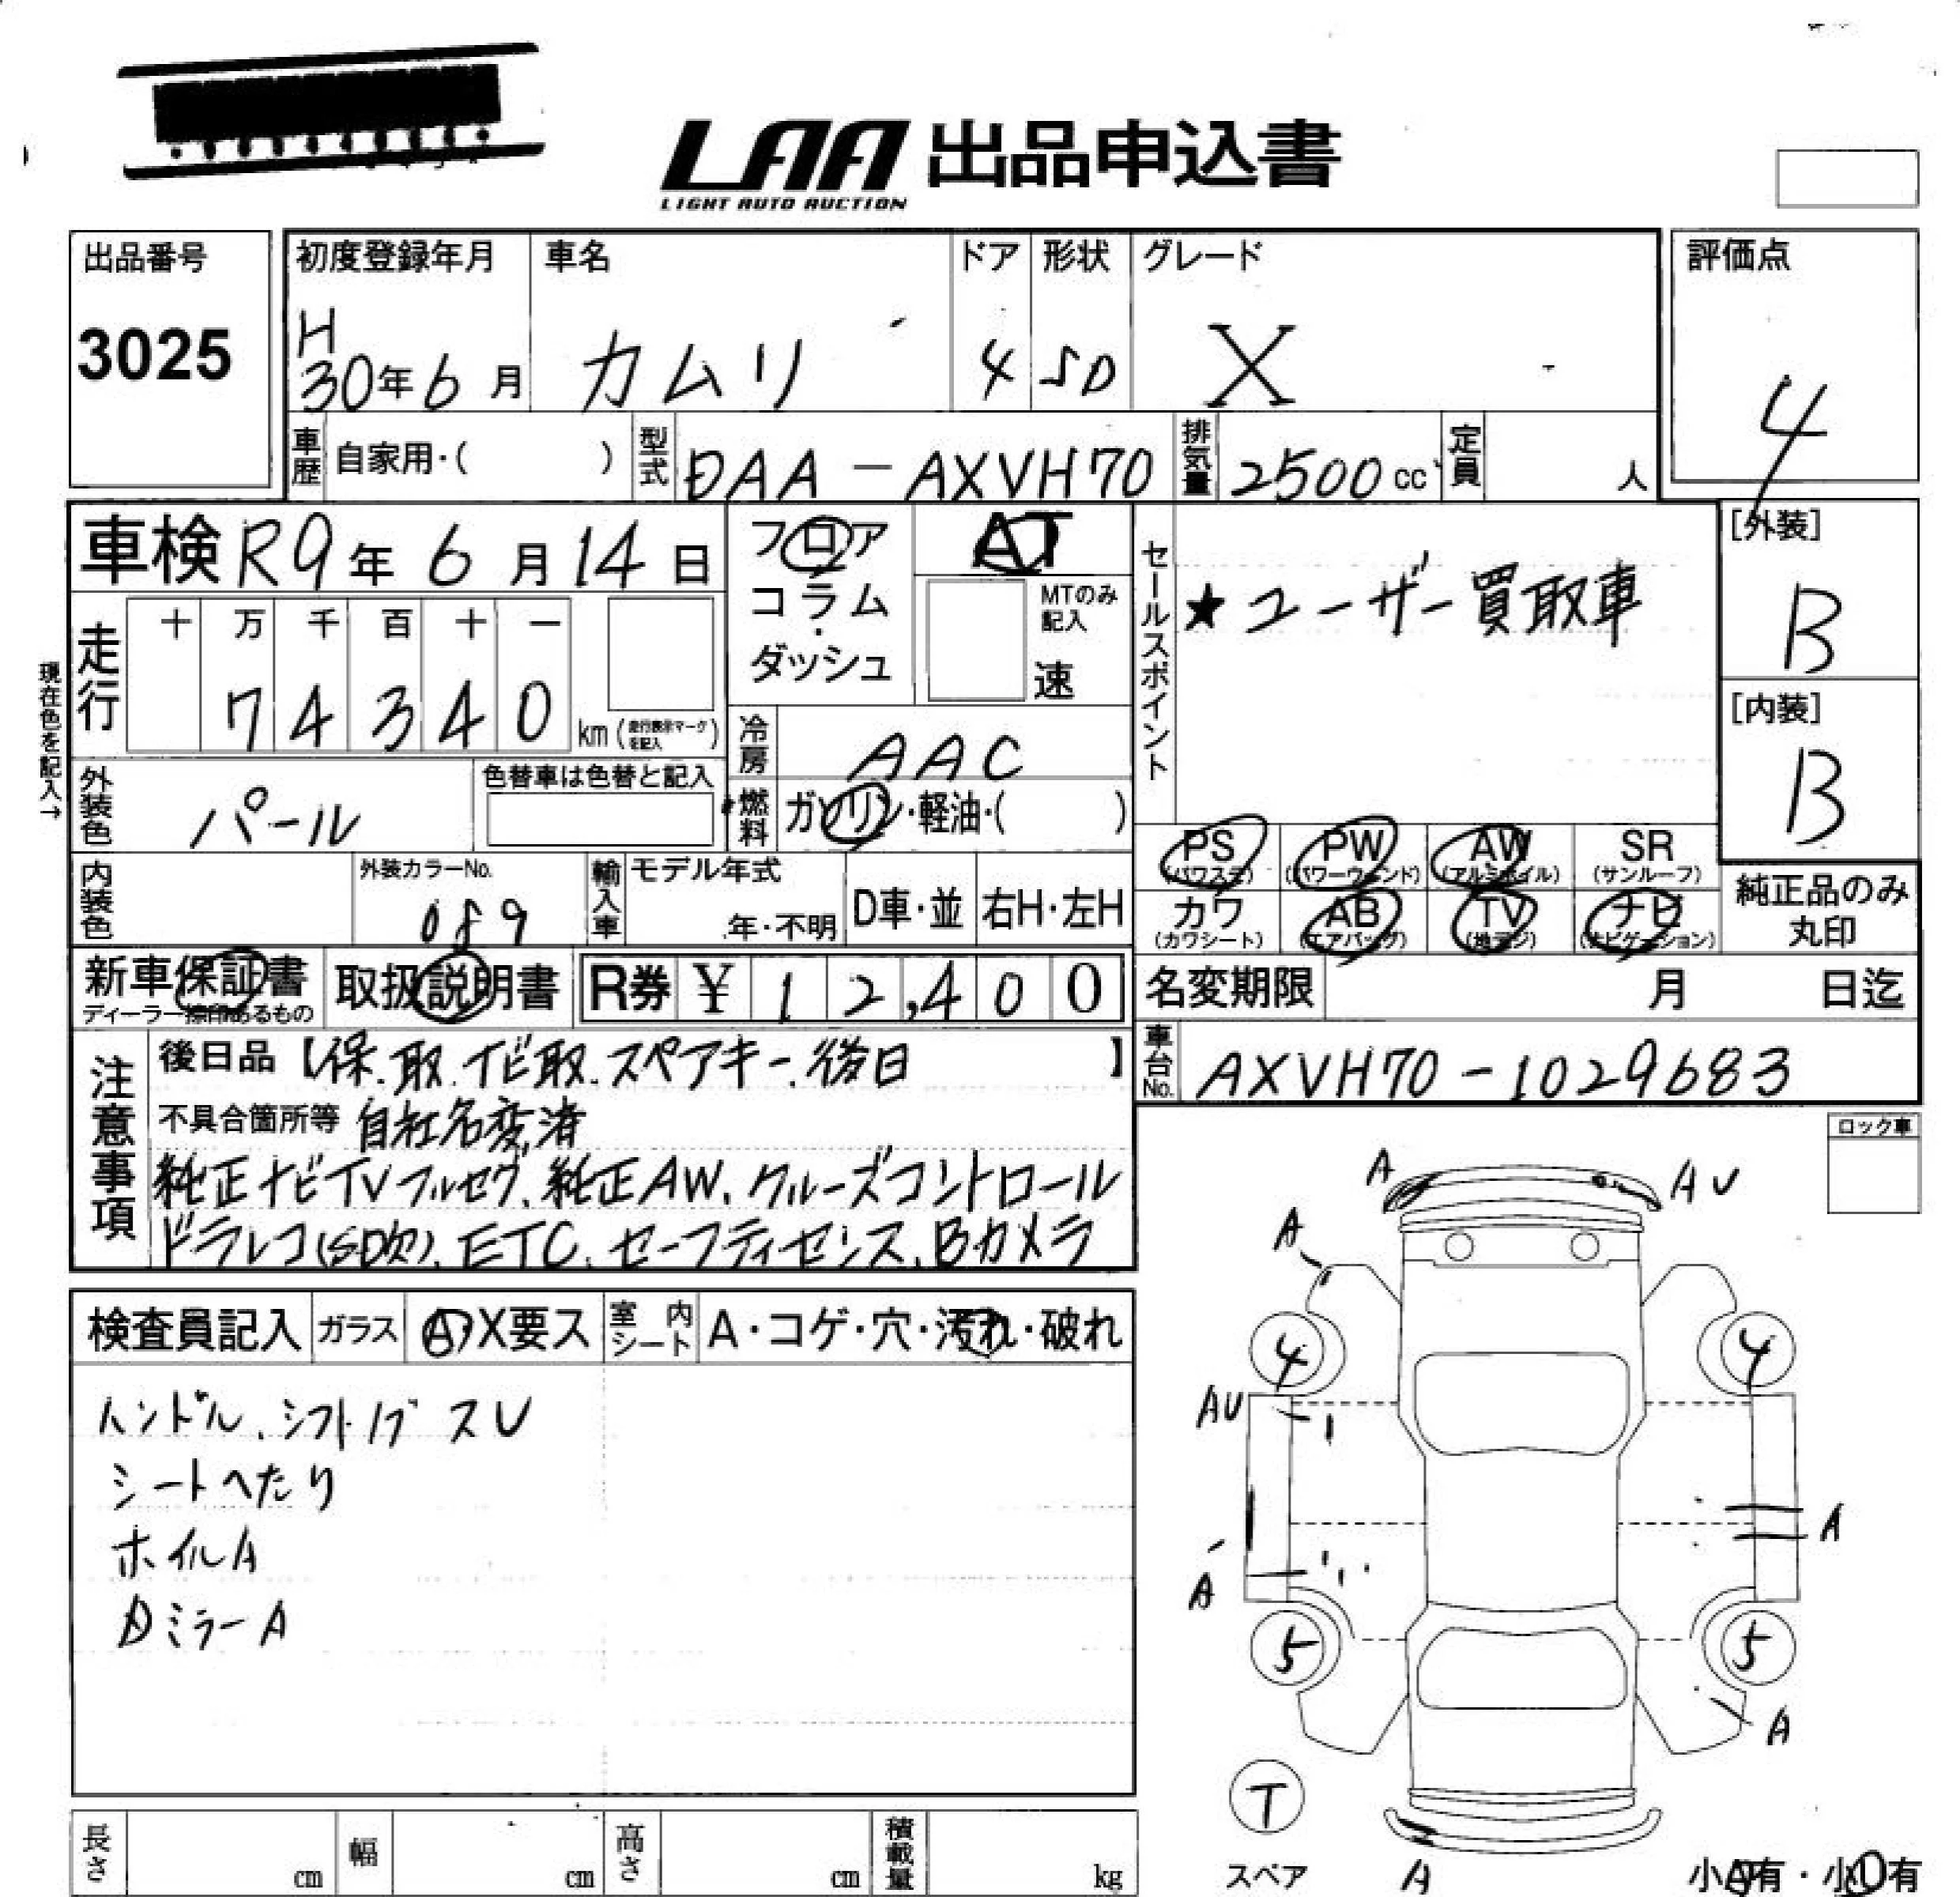 LAA 出品申込書
LIGHT AUTO AUCTION
出品番号
3025
初度登録年月
H
30年6月
車名
カムリ
ドア
4
形状
SD
グレード
X
評価点
4
車歴 自家用・( )
型式 DAA-AXVH70
排気量 2500cc
定員 人
車検 R9年6月14日
フロア
コラム
・
ダッシュ
AT
MTのみ記入
速
セールスポイント
★ユーザー買取車
[外装]
B
[内装]
B
現在色を記入→
走行
十 万 千 百 十 一
7 4 3 4 0 km(走行表示マークを記入)
冷房 AAC
燃料 ガソリン・軽油・( )
外装色 パール
色替車は色替と記入
内装色
外装カラーNo.
089
輸入車
モデル年式
年・不明
D車・並
右H・左H
PS(パワステ)
PW(パワーウィンド)
AW(アルミホイル)
SR(サンルーフ)
カワ(カワシート)
AB(エアバッグ)
TV(地デジ)
ナビ(ナビゲーション)
純正品のみ
丸印
新車保証書
ディーラー捺印あるもの
取扱説明書
R券 ¥12,400
名変期限 月 日迄
車台No. AXVH70-1029683
注意事項
後日品【保.取.ナビ取.スペアキー.後日】
不具合箇所等 自社名変済
純正ナビTVフルセグ、純正AW、クルーズコントロール
ドラレコ(SD欠)、ETC、セーフティセンス、Bカメラ
ロック車
検査員記入
ガラス A・X要ス
室内シート A・コゲ・穴・汚れ・破れ
ハンドル、シフトノブ スレ
シートへたり
ホイルA
Dミラー A
A
AU
A
4
4
AU
A
A
5
5
A
T
スペア
A
小A有・小U有
長さ cm
幅 cm
高さ cm
積載量 kg